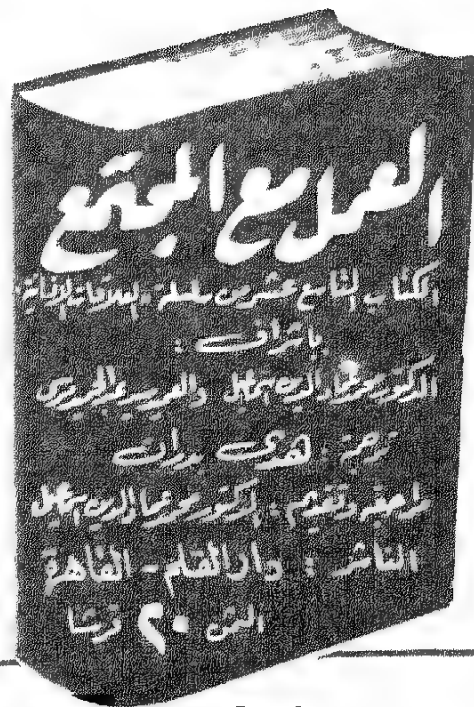 العمل مع المجتمع
الكتاب التاسع عشر من سلسلة "العلاقات الإنسانية"
بإشراف :
الدكتور محمد عماد الدين إسماعيل والعربي
ترجمة : هدى بدران
مراجعة وتقديم : الدكتور محمد عماد الدين إسماعيل
الناشر : دار القلم - القاهرة
الثمن ٢٠ قرشا